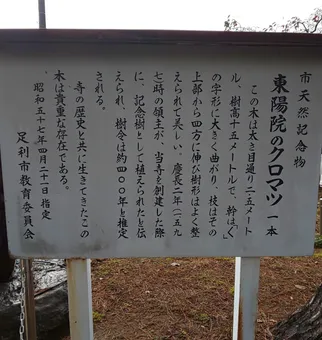 市天然記念物
東陽院のクロマツ 一本
この木は太さ目通り二・五メート
ル、樹高十五メートルで、幹はく
の字形に大きく曲がり、枝はその
上部から四方に伸び樹形はよく整
えられて美しい。慶長二年(一五九
七)時の領主が、当寺を創建した際
に、記念樹として植えられたと伝
えられ、樹令は約四〇〇年と推定
される。
寺の歴史と共に生きてきたこの
木は貴重な存在である。
昭和五十七年四月二十一日指定
足利市教育委員会